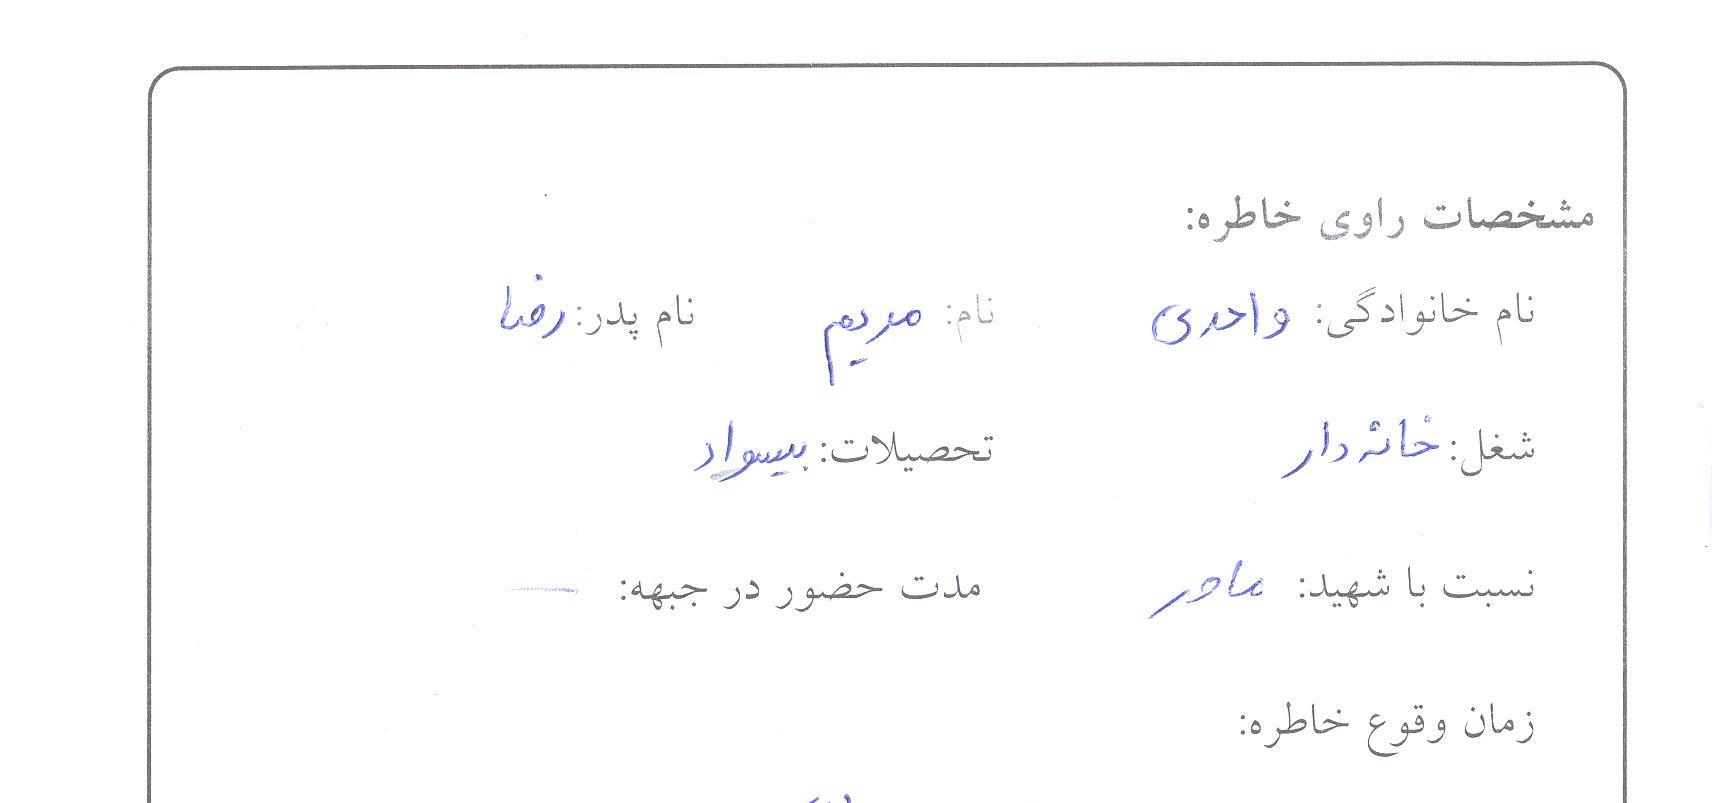 مشخصات راوی خاطره:
نام خانوادگی: واحدی نام: مریم نام پدر: رضا
شغل: خانه دار تحصیلات: بیسواد
نسبت با شهید: مادر مدت حضور در جبهه: —
زمان وقوع خاطره: